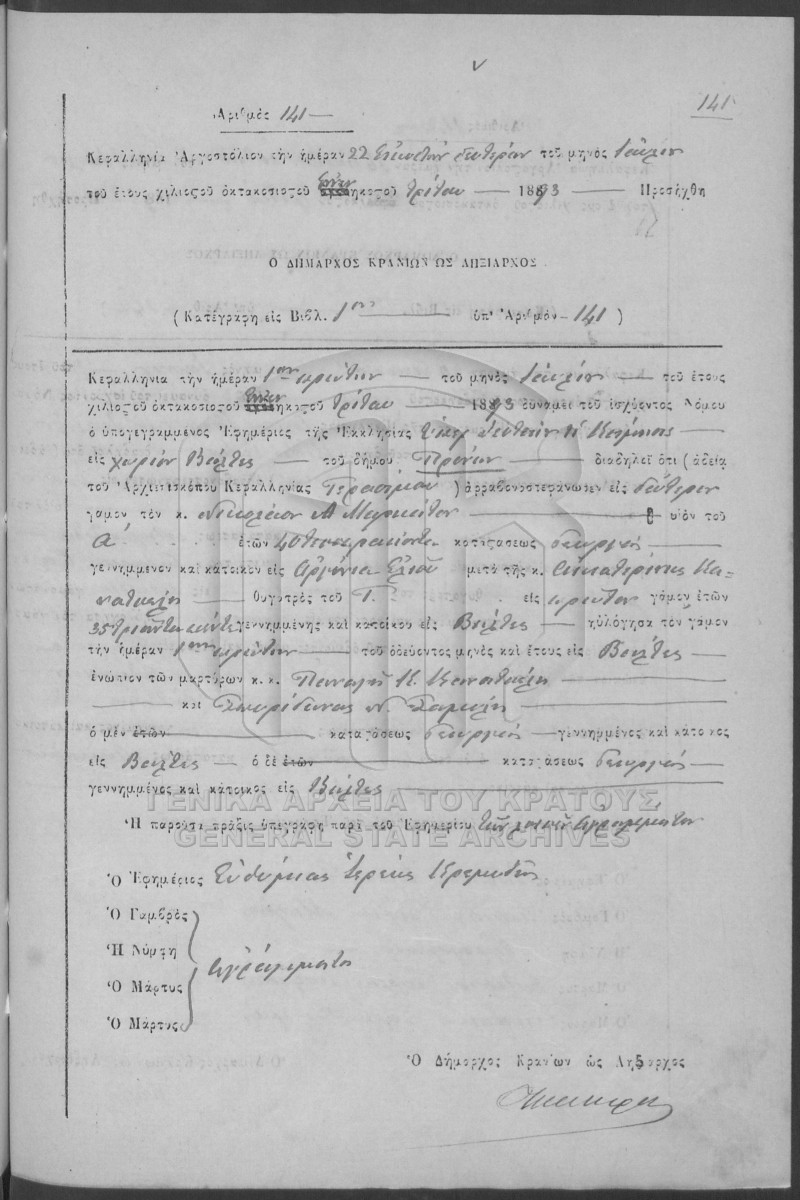 141
Ἀριθμὸς 141
Κεφαλληνία Ἀργοστόλιον τὴν ἡμέραν 22 εἰκοστὴν δευτέραν τοῦ μηνὸς Ἰουλίου
τοῦ ἔτους χιλιοστοῦ ὀκτακοσιοστοῦ ἐνενηκοστοῦ τρίτου 1893 Προσήχθη
Ὁ ΔΗΜΑΡΧΟΣ ΚΡΑΝΙΩΝ ΩΣ ΛΗΞΙΑΡΧΟΣ
(Κατεγράφη εἰς Βιβλ. 1ον ὑπ' Ἀριθμὸν 141)
Κεφαλληνία τὴν ἡμέραν 1ην πρώτην τοῦ μηνὸς Ἰουλίου τοῦ ἔτους
χιλιοστοῦ ὀκτακοσιοστοῦ ἐνενηκοστοῦ τρίτου 1893 δυνάμει τοῦ ἰσχύοντος Νόμου
ὁ ὑπογεγραμμένος Ἐφημέριος τῆς Ἐκκλησίας Κοίμησις
εἰς χωρίον Βάλτες τοῦ δήμου Πρόννων διαδηλεῖ ὅτι (ἀδείᾳ
τοῦ Ἀρχιεπισκόπου Κεφαλληνίας Γερασίμου) ἀρραβονοστεφάνωσεν εἰς δεύτερον
γάμον τὸν κ. Νικόλαον Α Μαρκάτον υἱὸν τοῦ
Α ἐτῶν 40 τεσσαράκοντα καταστάσεως γεωργός
γεννημένον καὶ κάτοικον εἰς Ἀργίνια Ἐλιοῦ μετὰ τῆς κ. Αἰκατερίνης Κα-
ναπακλῆ θυγατρὸς τοῦ Γ. εἰς πρῶτον γάμον ἐτῶν
35 τριάντα πέντε γεννημμένης καὶ κατοίκου εἰς Βάλτες ηὐλόγησα τὸν γάμον
τὴν ἡμέραν 1ην πρώτην τοῦ ὁδεύοντος μηνὸς καὶ ἔτους εἰς Βάλτες
ἐνώπιον τῶν μαρτύρων κ. κ. Παναγῆ Κ.
καὶ Σπυρίδωνος Ν.
ὁ μὲν ἐτῶν καταστάσεως γεωργός γεννημμένος καὶ κάτοικος
εἰς Βάλτες ὁ δὲ ἐτῶν καταστάσεως γεωργός
γεννημμένος καὶ κάτοικος εἰς Βάλτες
ΓΕΝΙΚΑ ΑΡΧΕΙΑ ΤΟΥ ΚΡΑΤΟΥΣ
Ἡ παροῦσα πρᾶξις ὑπεγράφη παρὰ τοῦ Ἐφημερίου τῶν λοιπῶν ἀγραμμάτων
GENERAL STATE ARCHIVES
Ὁ Ἐφημέριος Εὐθύμιος Ἱερεὺς
Ὁ Γαμβρὸς
Ἡ Νύμφη
ἀγράμματοι
Ὁ Μάρτυς
Ὁ Μάρτυς
Ὁ Δήμαρχος Κρανίων ὡς Ληξίαρχος